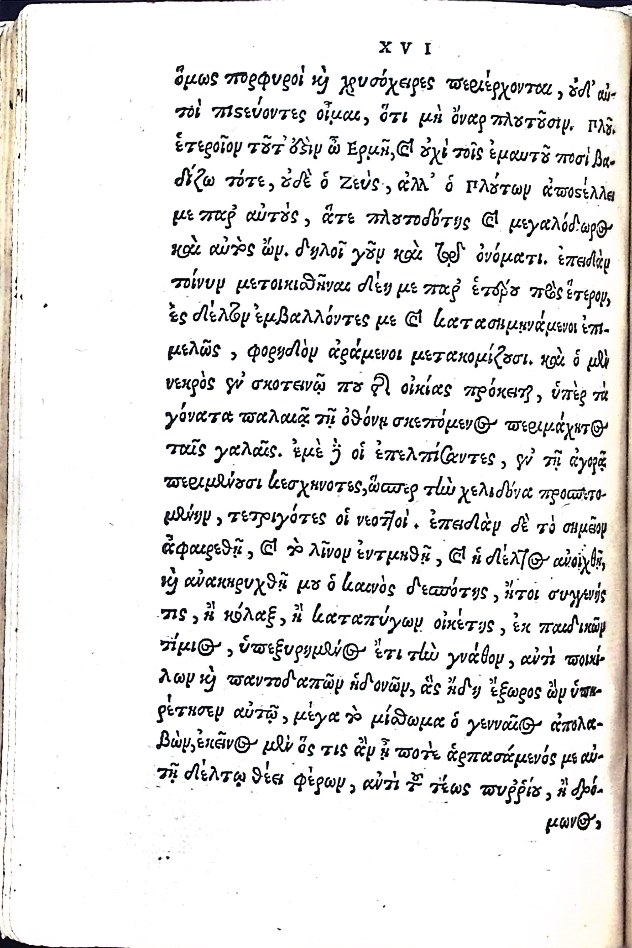 XVI
ὅμως πορφυροῖ καὶ χρυσόχειρες περιέρχονται, οὐδ' αὐ-
τοὶ πιστεύοντες οἶμαι, ὅτι μὴ ὄναρ πλουτοῦσιν. Πλοῦ.
ἑτεροῖον τοῦτ' ἐστὶν ὦ Ἑρμῆ, καὶ οὐχὶ τοῖς ἐμαυτοῦ ποσὶ βα-
δίζω τότε, οὐδὲ ὁ Ζεὺς, ἀλλ' ὁ Πλούτων ἀποστέλλει
με παρ' αὐτοὺς, ἅτε πλουτοδότης καὶ μεγαλόδωρος
καὶ αὐτὸς ὤν. δηλοῖ γοῦν καὶ τῷ ὀνόματι. ἐπειδὰν
τοίνυν μετοικισθῆναι δέῃ με παρ' ἑτέρου πρὸς ἕτερον,
ἐς δέλτον ἐμβαλλόντες με καὶ κατασημηνάμενοι ἐπι-
μελῶς, φορηδὸν ἀράμενοι μετακομίζουσι. καὶ ὁ μὲν
νεκρὸς ἐν σκοτεινῷ που τῆς οἰκίας πρόκειται, ὑπὲρ τὰ
γόνατα παλαιᾷ τῇ ὀθόνῃ σκεπόμενος περιμάχητος
ταῖς γαλαῖς. ἐμὲ δὲ οἱ ἐπελπίσαντες, ἐν τῇ ἀγορᾷ
περιμένουσι κεχηνότες, ὥσπερ τὴν χελιδόνα προσπετο-
μένην, τετριγότες οἱ νεοττοί. ἐπειδὰν δὲ τὸ σημεῖον
ἀφαιρεθῇ, καὶ τὸ λίνον ἐντμηθῇ, καὶ ἡ δέλτος ἀνοιχθῇ,
καὶ ἀνακηρυχθῇ μου ὁ καινὸς δεσπότης, ἤτοι συγγενής
τις, ἢ κόλαξ, ἢ καταπύγων οἰκέτης, ἐκ παιδικῶν
τίμιος, ὑπεξυρημένος ἔτι τὴν γνάθον, ἀντὶ ποικί-
λων καὶ παντοδαπῶν ἡδονῶν, ἃς ἤδη ἔξωρος ὢν ὑπη-
ρέτησεν αὐτῷ, μέγα τὸ μίσθωμα ὁ γενναῖος ἀπολα-
βὼν, ἐκεῖνος μὲν ὅς τις ἂν ᾖ ποτὲ ἁρπασάμενός με αὐ-
τῇ δέλτῳ θέει φέρων, ἀντὶ τοῦ τέως πυῤῥίου, ἢ δρό-
μωνος,